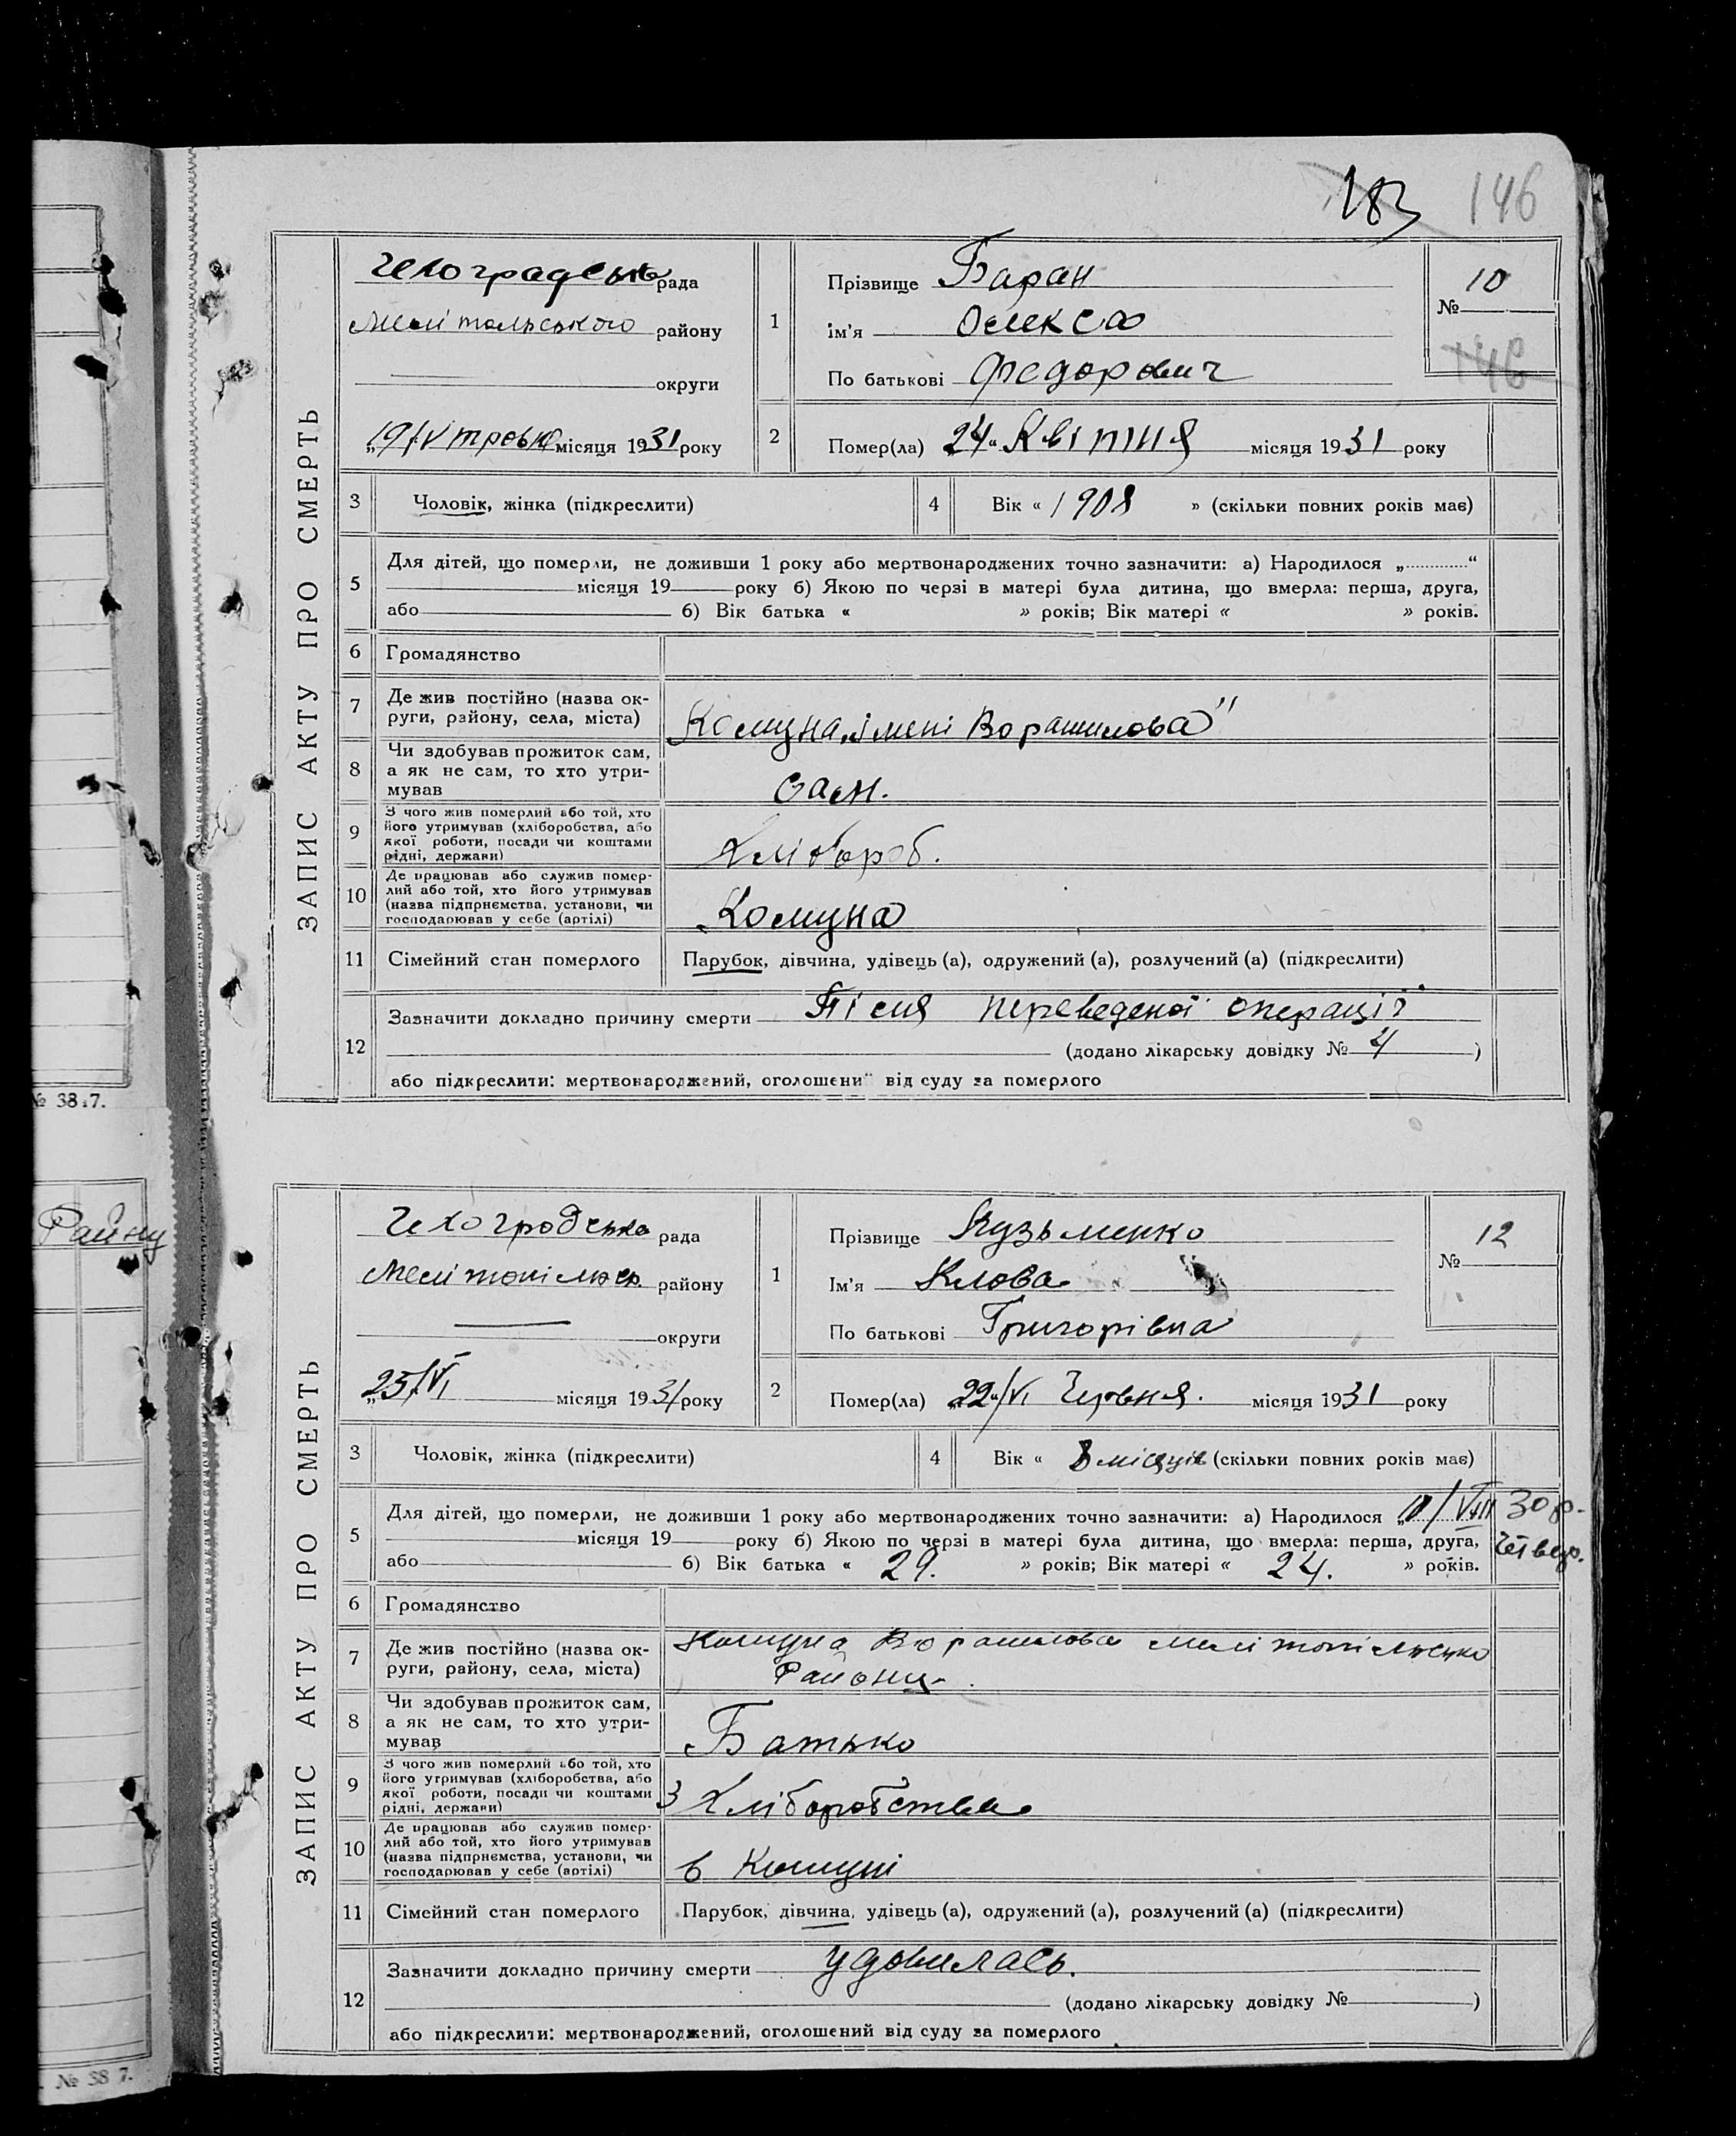 183 146
ЗАПИС АКТУ ПРО СМЕРТЬ
Чехоградська рада
Мелітопольського району
округи
„19/IV травня місяця 1931 року
1
Прізвище Баран
ім'я Олекса
По батькові Федорович
№ 10
146
2
Помер(ла) „24“ Квітня місяця 1931 року
3 Чоловік, жінка (підкреслити)
4 Вік « 1908 » (скільки повних років має)
5 Для дітей, що померли, не доживши 1 року або мертвонароджених точно зазначити: а) Народилося „.............“
місяця 19 року б) Якою по черзі в матері була дитина, що вмерла: перша, друга,
або б) Вік батька « » років; Вік матері « » років.
6 Громадянство
7 Де жив постійно (назва ок-
руги, району, села, міста) Комуна „імені Ворашилова"
8 Чи здобував прожиток сам,
а як не сам, то хто утри-
мував сам.
9 З чого жив померлий або той, хто
його утримував (хліборобства, або
якої роботи, посади чи коштами
рідні, держави) Хлібороб.
10 Де працював або служив помер-
лий або той, хто його утримував
(назва підприємства, установи, чи
господарював у себе (артілі) Комуна
11 Сімейний стан померлого Парубок, дівчина, удівець (а), одружений (а), розлучений (а) (підкреслити)
12 Зазначити докладно причину смерти Після переведеної операції
(додано лікарську довідку № 4 )
або підкреслити: мертвонароджений, оголошений від суду за померлого
№ 38.7.
Району
ЗАПИС АКТУ ПРО СМЕРТЬ
Чехогродська рада
Мелітопільск. району
округи
„25/VI місяця 1931 року
1
Прізвище Кузьменко
Ім'я Клова
По батькові Григорівна
№ 12
2
Помер(ла) „22“/VI Червня. місяця 1931 року
3 Чоловік, жінка (підкреслити)
4 Вік « 8 місяців (скільки повних років має)
5 Для дітей, що померли, не доживши 1 року або мертвонароджених точно зазначити: а) Народилося „11/VIII 30 р.
місяця 19 року б) Якою по черзі в матері була дитина, що вмерла: перша, друга, четвер.
або б) Вік батька « 29. » років; Вік матері « 24. » років.
6 Громадянство
7 Де жив постійно (назва ок-
руги, району, села, міста) Комуна Ворашилова Мелітопільсько
Району.
8 Чи здобував прожиток сам,
а як не сам, то хто утри-
мував Батько
9 З чого жив померлий або той, хто
його утримував (хліборобства, або
якої роботи, посади чи коштами
рідні, держави) З Хліборобства
10 Де працював або служив помер-
лий або той, хто його утримував
(назва підприємства, установи, чи
господарював у себе (артілі) в Комуні
11 Сімейний стан померлого Парубок, дівчина, удівець (а), одружений (а), розлучений (а) (підкреслити)
12 Зазначити докладно причину смерти удовилась.
(додано лікарську довідку № )
або підкреслити: мертвонароджений, оголошений від суду за померлого
№ 38 7.